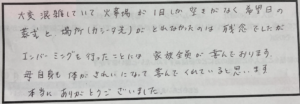 大変混雑していて火葬場が1日しか空きがなく希望日の
葬式と場所(カシータ天)がとれなかったのは残念でしたが
エンバーミングを行ったことは家族全員が喜んでおります。
母自身も体がきれいになって喜んでくれていると思います
本当にありがとうございました。